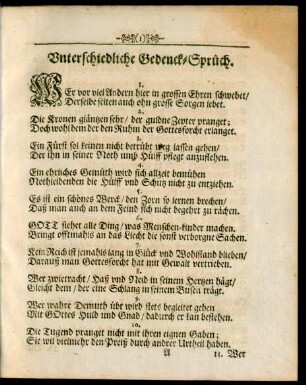 (1)
Vnterschiedliche Gedenck-Sprüch.
1.
WEr vor viel Andern hier in grossen Ehren schwebet/
Derselbe selten auch ohn grosse Sorgen lebet.
2.
Die Kronen gläntzen sehr/ der guldne Zepter pranget;
Doch wohl dem der den Ruhm der Gottesforcht erlanget.
3.
Ein Fürst sol seinen nicht betrübt weg lassen gehen/
Der ihn in seiner Noth umb Hülff pflegt anzuflehen.
4.
Ein ehrliches Gemüth wird sich allzeit bemühen
Nothleidenden die Hülff und Schutz nicht zu entziehen.
5.
Es ist ein schönes Werck/ den Zorn so lernen brechen/
Daß man auch an dem Feind sich nicht begehrt zu rächen.
6.
GOTT siehet alle Ding/ was Menschen-kinder machen.
Bringt offtmahls an das Liecht die sonst verborgne Sachen.
7.
Kein Reich ist jemahls lang in Glück und Wohlstand blieben/
Darauß man Gottesforcht hat mit Gewalt vertrieben.
8.
Wer zwietracht/ Haß und Neid in seinem Hertzen hägt/
Gleicht dem/ der eine Schlang in seinem Busen trägt.
9.
Wer wahre Demuth übt wird stets begleitet gehen
Mit GOttes Huld und Gnad/ dadurch er kan bestehen.
10.
Die Tugend pranget nicht mit ihren eignen Gaben;
Sie wil vielmehr den Preiß durch andrer Urtheil haben.
A 11. Wer